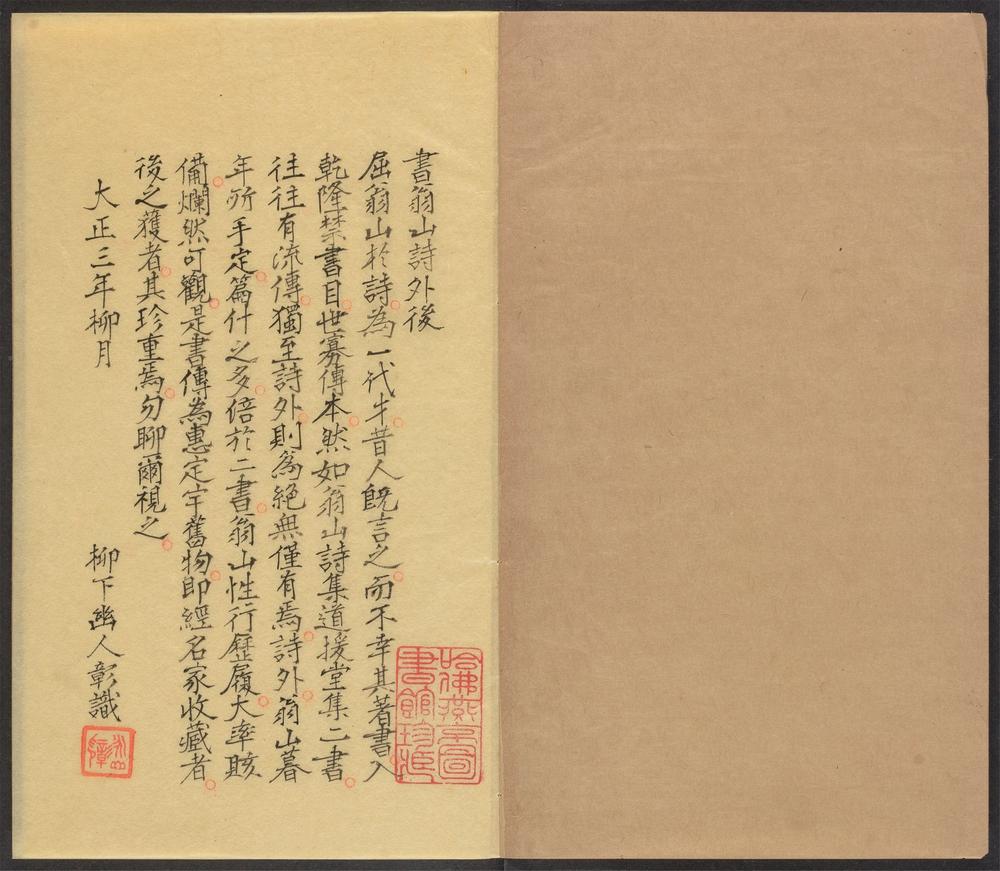 書翁山詩外後
屈翁山於詩為一代才昔人旣言之而不幸其著書入
乾隆禁書目世寡傳本然如翁山詩集道援堂集二書
往往有流傳獨至詩外則為絕無僅有焉詩外翁山暮
年所手定篇什之多倍於二書翁山性行歷履大率賅
備爛然可觀是書傳為惠定宇舊物即經名家收藏者
後之獲者其珍重焉勿聊爾視之
大正三年柳月
柳下幽人彰識
哈佛燕京圖
書館珍藏